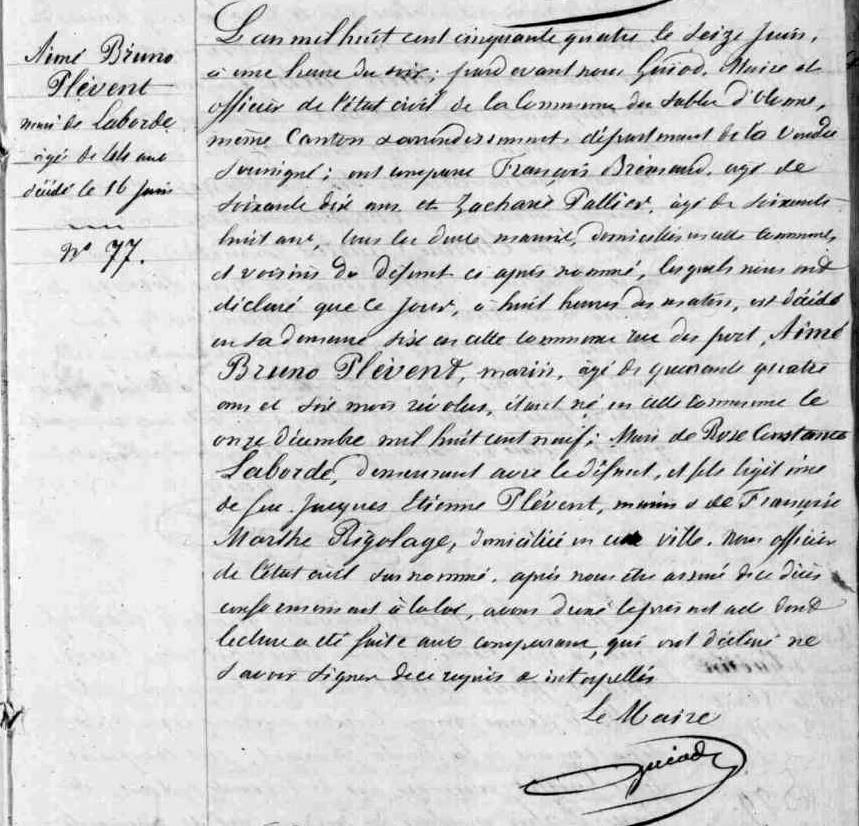 Aimé Bruno
Plévent
mari de Laborde
âgé de 44 ans
décédé le 16 Juin
N° 77.
L'an mil huit cent cinquante quatre le seize Juin,
à une heure du soir; pardevant nous Guiod, Maire et
officier de l'état civil de la Commune des Sables d'Olonne,
même Canton & arrondissement, département de la Vendée
soussigné; ont comparu François Brémaud, âgé de
soixante dix ans et Zacharie Pallier, âgé de soixante
huit ans, tous les deux marins, domiciliés en cette commune,
et voisins du défunt ci après nommé, lesquels nous ont
déclaré que ce jour, à huit heures du matin, est décédé
en sa demeure sise en cette commune rue du port, Aimé
Bruno Plévent, marin, âgé de quarante quatre
ans et six mois révolus, étant né en cette commune le
onze décembre mil huit cent neuf; Mari de Rose Constance
Laborde, demeurant avec le défunt, et fils légitime
de feu Jacques Etienne Plévent, marin & de Françoise
Marthe Rigolage, domiciliée en cette ville. Nous officier
de l'état civil susnommé, après nous être assuré dece décès
conformément à la loi, avons dressé le présent acte dont
lecture a été faite aux comparans, qui ont déclaré ne
savoir signer dece requis & interpellés
Le Maire
Guiod